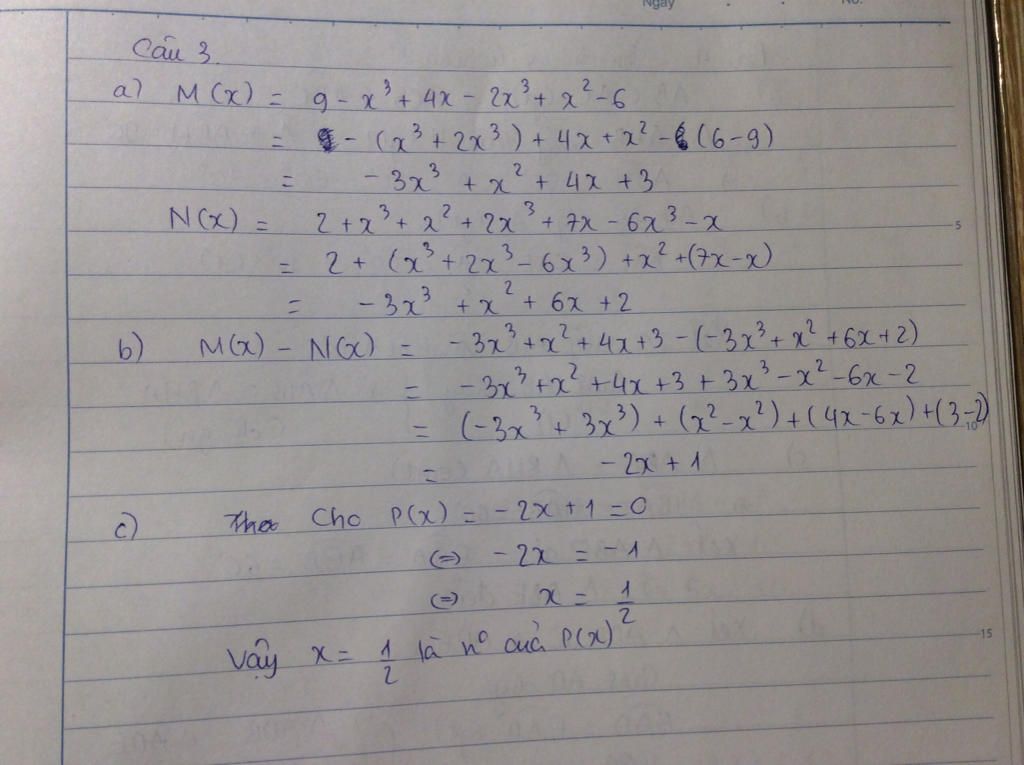 Ngày No.
Câu 3.
a) M(x) = 9 - x³ + 4x - 2x³ + x² - 6
= - (x³ + 2x³) + 4x + x² - (6 - 9)
= -3x³ + x² + 4x + 3
N(x) = 2 + x³ + x² + 2x³ + 7x - 6x³ - x
5
= 2 + (x³ + 2x³ - 6x³) + x² + (7x - x)
= -3x³ + x² + 6x + 2
b) M(x) - N(x) = -3x³ + x² + 4x + 3 - (-3x³ + x² + 6x + 2)
= -3x³ + x² + 4x + 3 + 3x³ - x² - 6x - 2
= (-3x³ + 3x³) + (x² - x²) + (4x - 6x) + (3 - 2)
10
= -2x + 1
c) Cho P(x) = -2x + 1 = 0
(=) -2x = -1
(=) x = 1/2
15
Vậy x = 1/2 là n⁰ của P(x)